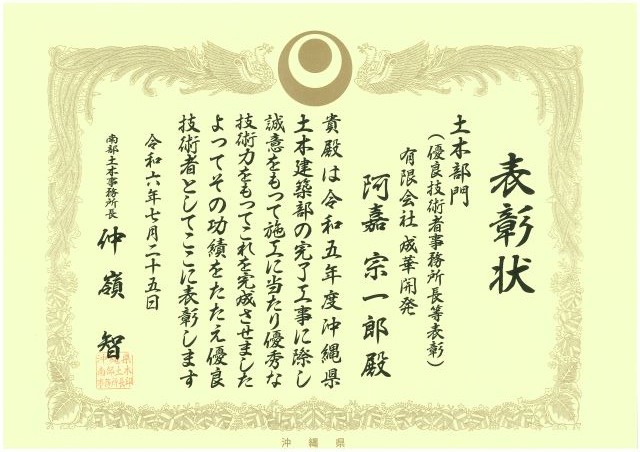 表彰状
土木部門
（優良技術者事務所長等表彰）
有限会社 成華開発
阿嘉 宗一郎 殿
貴殿は令和五年度沖縄県
土木建築部の完了工事に際し
誠意をもって施工に当たり優秀な
技術力をもってこれを完成させました
よってその功績をたたえ優良
技術者としてここに表彰します
令和六年七月二十五日
南部土木事務所長 仲嶺 智
沖縄県